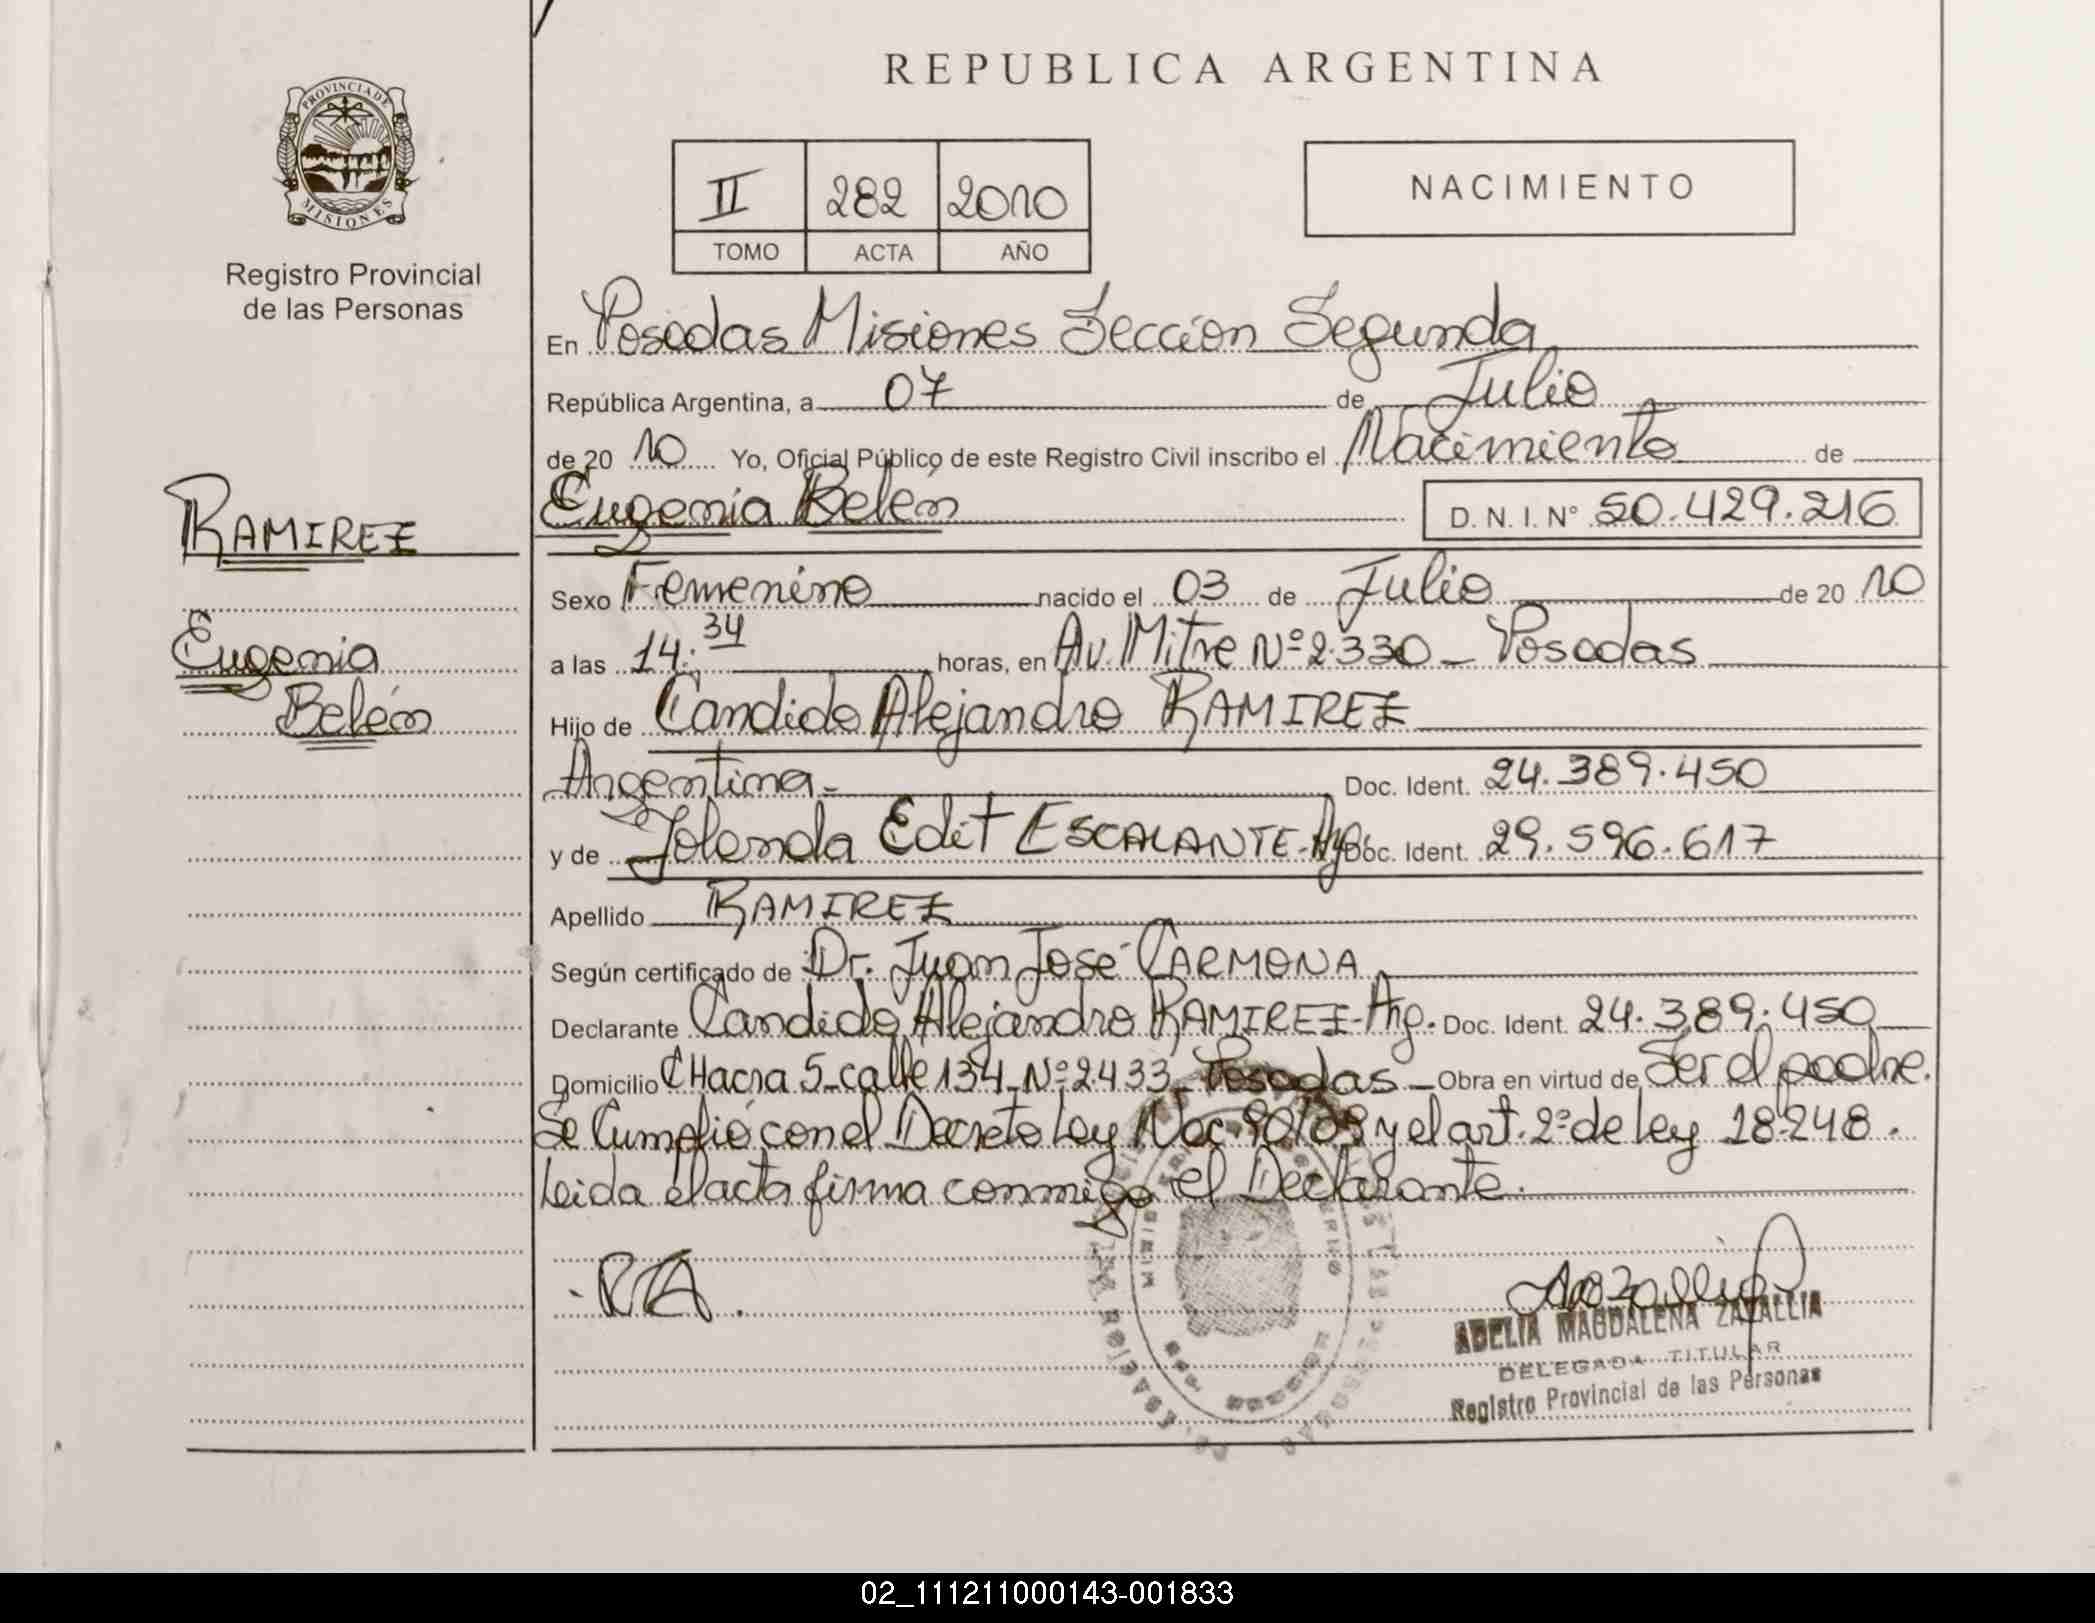 REPUBLICA ARGENTINA
PROVINCIA DE
MISIONES
Registro Provincial
de las Personas
II 282 2010
TOMO ACTA AÑO
NACIMIENTO
En Posadas Misiones Sección Segunda
República Argentina, a 07 de Julio
de 20 10 Yo, Oficial Público de este Registro Civil inscribo el Nacimiento de
Eugenia Belén D. N. I. N° 50.429.216
RAMIREZ
Sexo Femenino nacido el 03 de Julio de 20 10
Eugenia
Belén
a las 14:34 horas, en Av. Mitre Nº 2.330 - Posadas
Hijo de Candido Alejandro RAMIREZ
Argentina.- Doc. Ident. 24.389.450
y de Iolanda Edit ESCALANTE-Arg. Doc. Ident. 29.596.617
Apellido RAMIREZ
Según certificado de Dr. Juan José CARMONA
Declarante Candido Alejandro RAMIREZ-Arg. Doc. Ident. 24.389.450
Domicilio CHacra 5-calle 134-Nº 2433-Posadas - Obra en virtud de Ser el padre.
Se Cumplió con el Decreto Ley Nac. 90/09 y el art. 2º de ley 18248.
Leida el acta firma conmigo el Declarante.
ADELIA MAGDALENA ZAZALLIA
DELEGADA TITULAR
Registro Provincial de las Personas
02_111211000143-001833